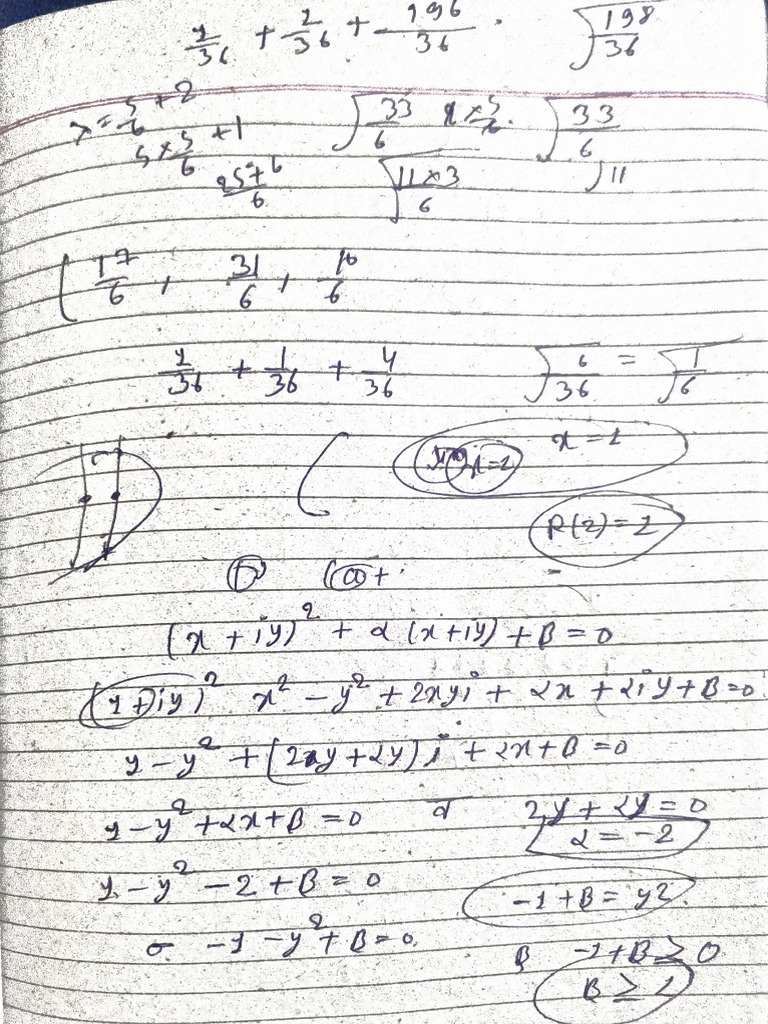 1/36 + 1/36 + 196/36 . √(198/36)
x = 5/6 + 2
5 × 5/6 + 1 √(33/6) √(33/6)
(25+6)/6 √((11×3)/6) √11
( 17/6 , 31/6 , 16/6
1/36 + 1/36 + 4/36 √(6/36) = √(1/6)
( x = 1
x = 1
R(z) = 1
(x + iy)² + α(x + iy) + B = 0
(1 + iy)² x² - y² + 2xyi + αx + αiy + B = 0
1 - y² + (2xy + αy)i + αx + B = 0
1 - y² + αx + B = 0 2y + αy = 0
α = -2
1 - y² - 2 + B = 0 -1 + B = y²
-1 - y² + B = 0 B -1 + B ≥ 0
B ≥ 1